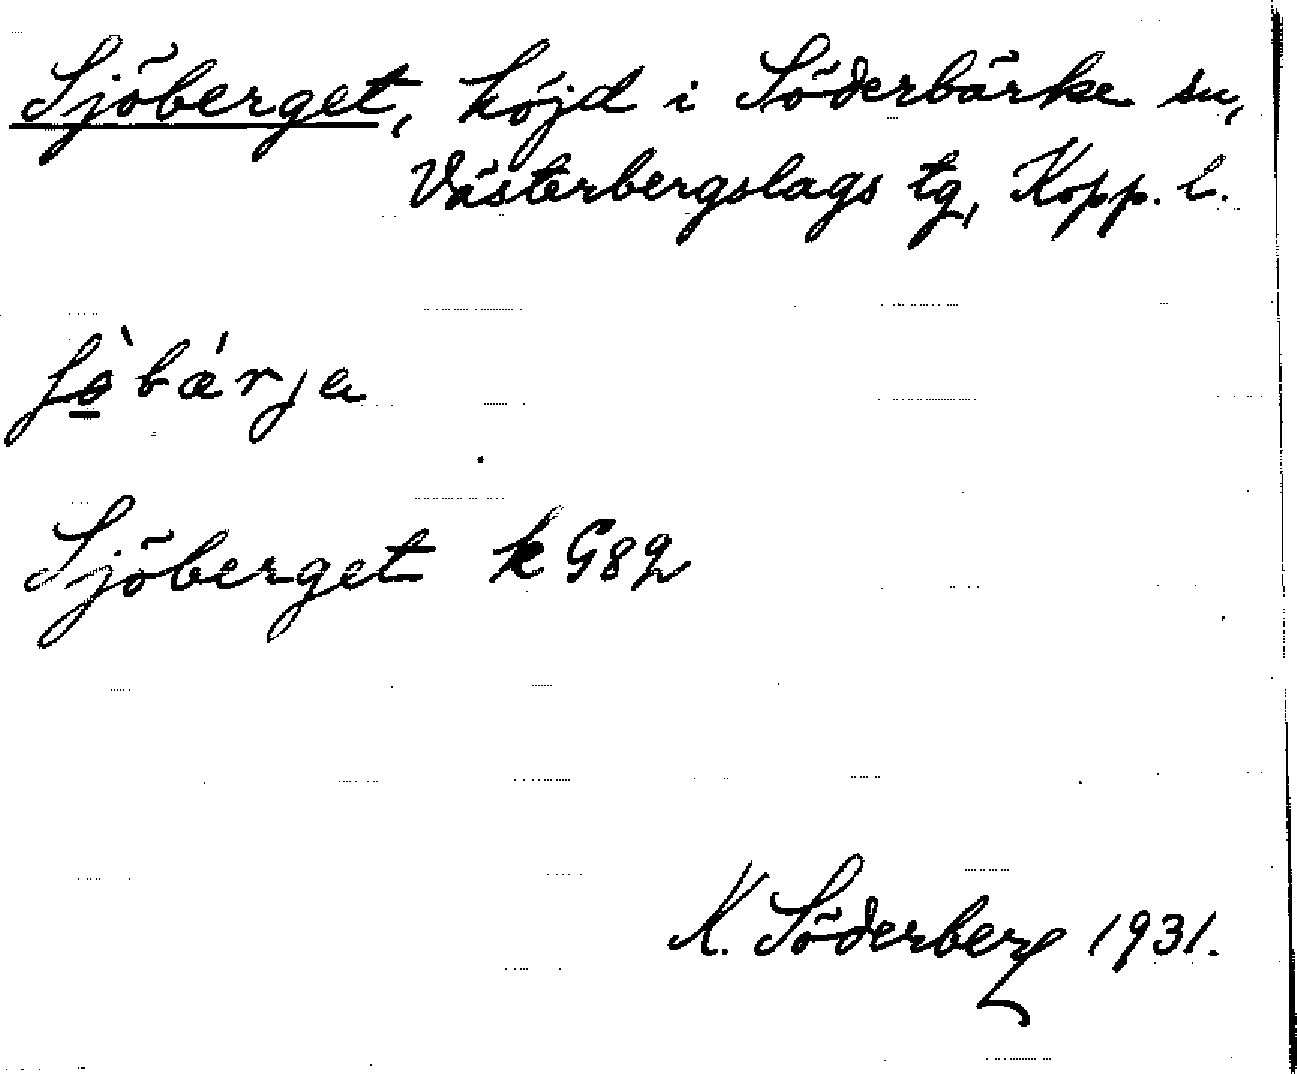 Sjöberget, höjd i Söderbärke sn,
Västerbergslags tg, Kopp. l.
ʃèbǽrja
Sjöberget k G82
K. Söderberg 1931.